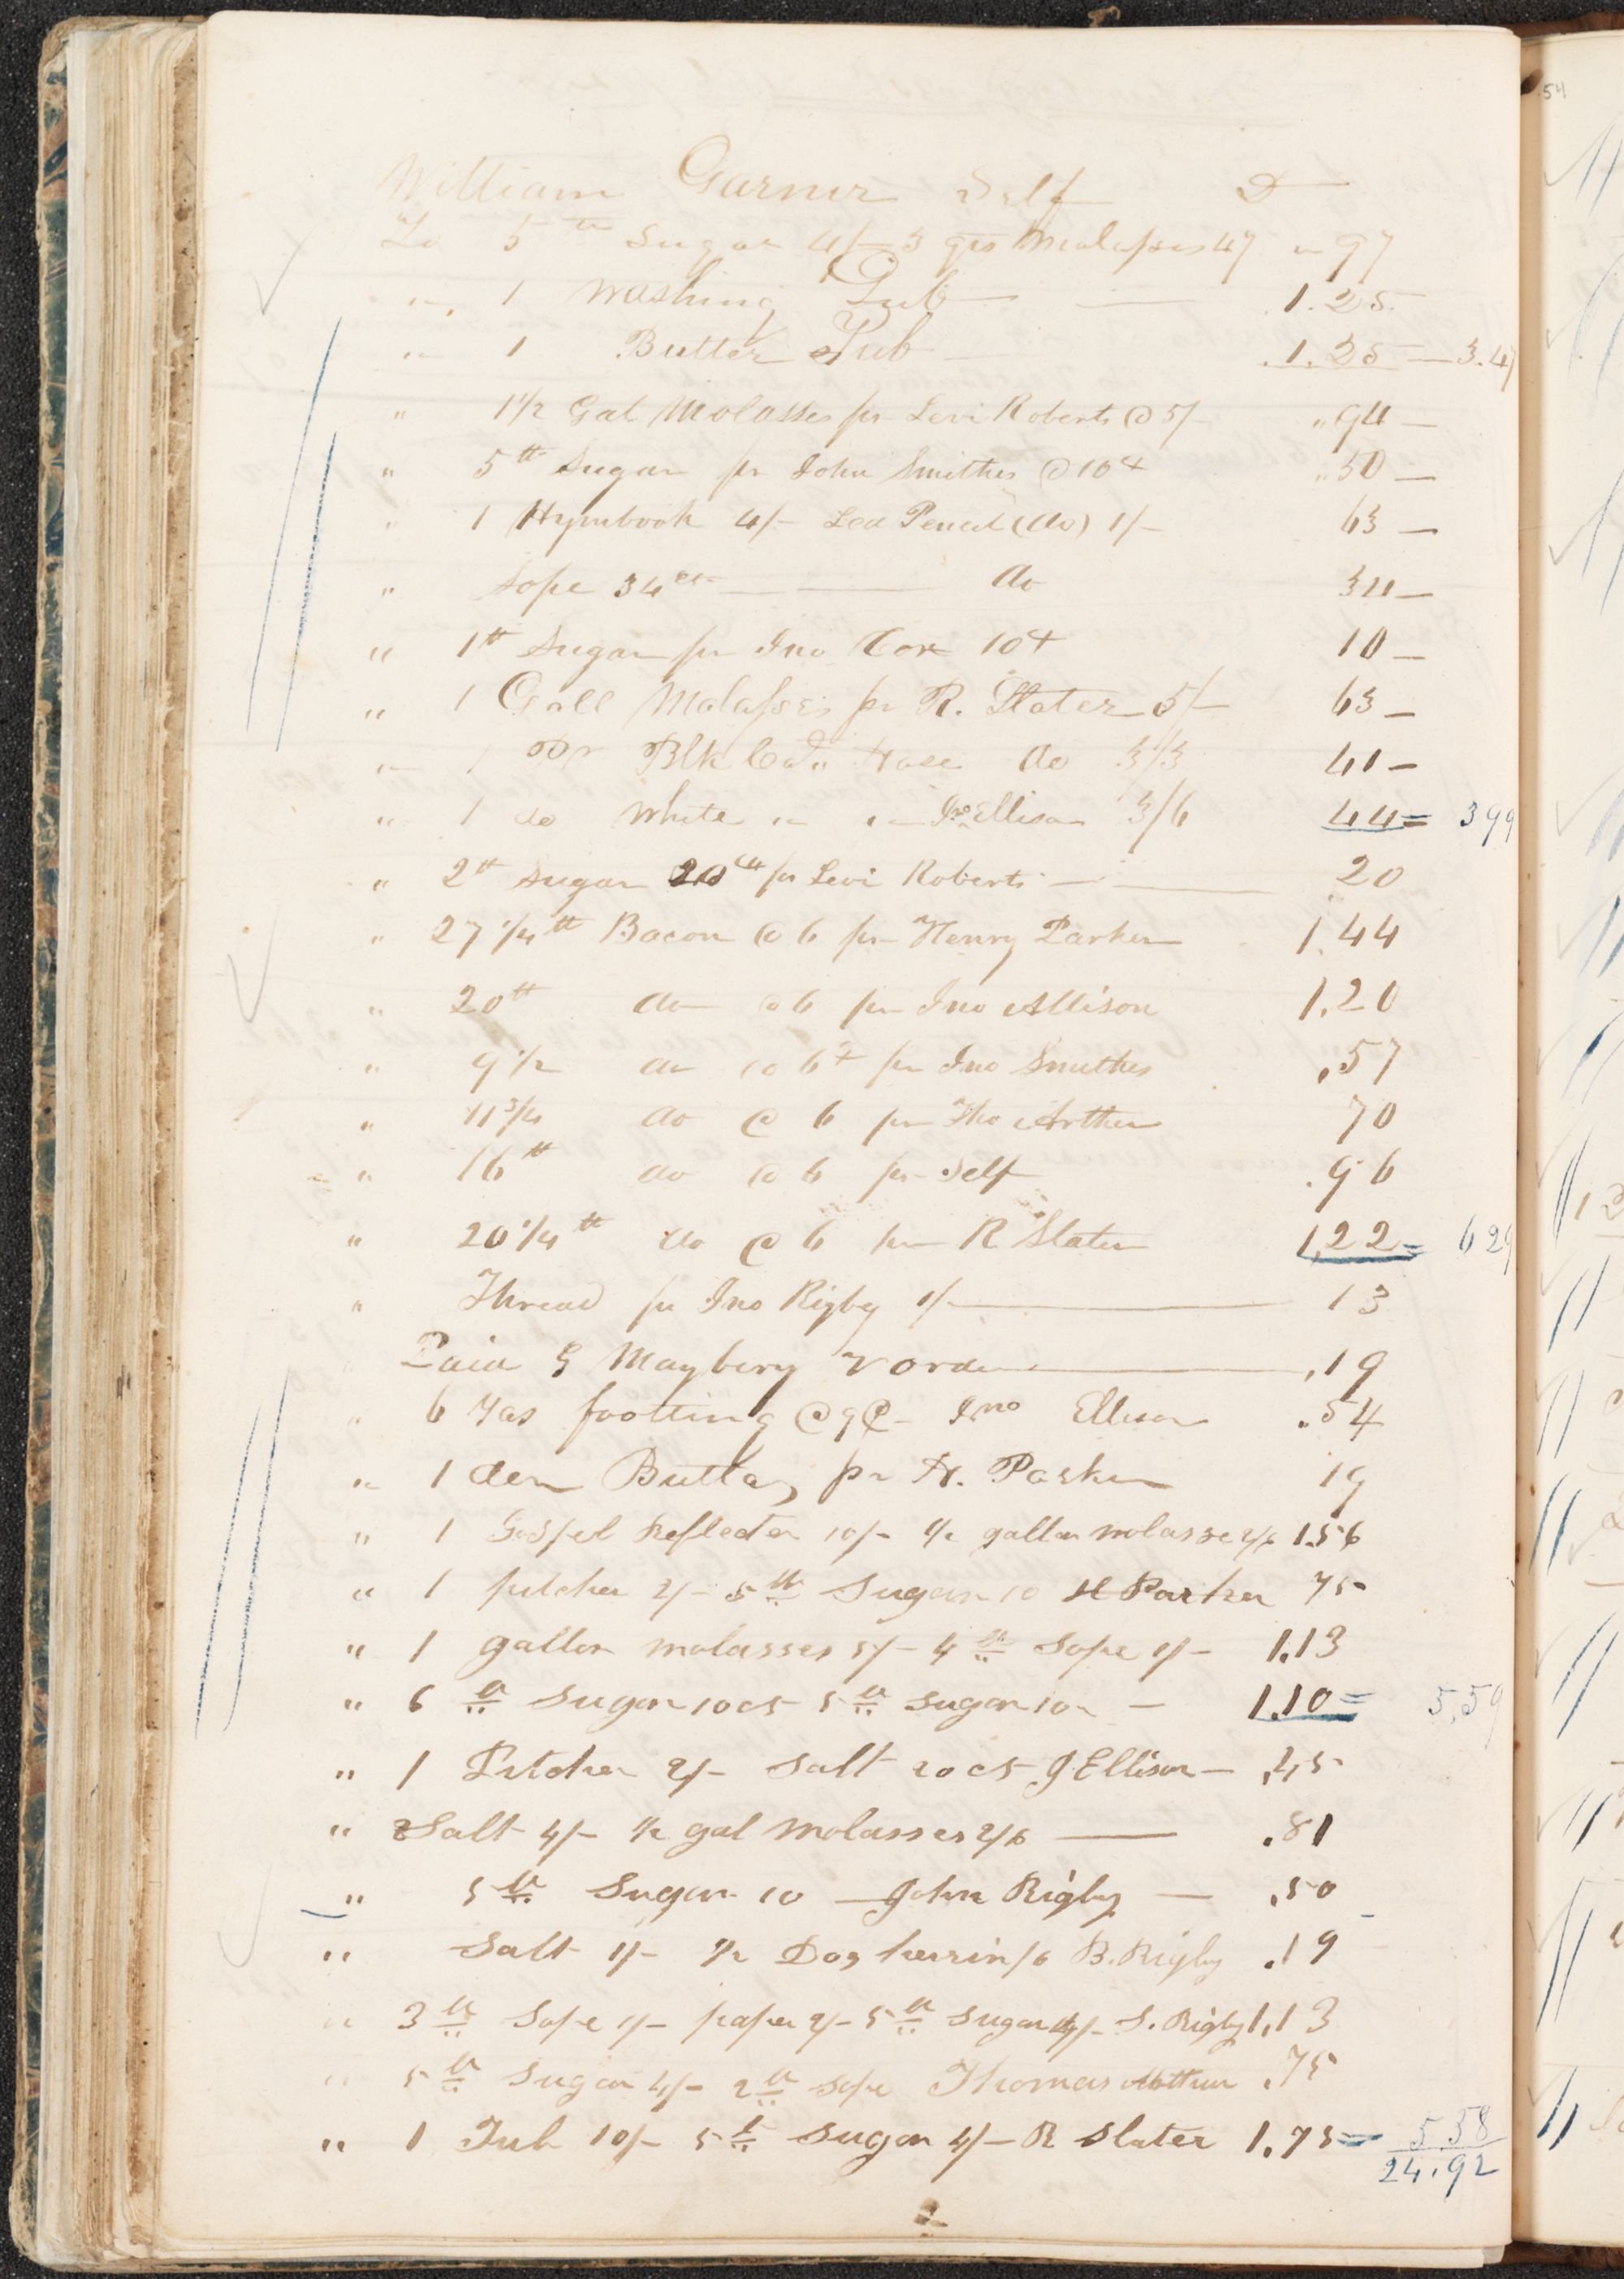 William Garner Self D
To 5 lb Sugar 4/- 3 qrs Molasses 47 " 97
" 1 Washing Tub 1.25
" 1 Butter Tub 1.25 — 3.47
" 1 1/2 Gal Molasses pr Levi Roberts @ 5/- " 94 —
" 5 lb Sugar pr John Smithes @ 10 " 50 —
" 1 Hymbook 4/- Led Pencil (do) 1/- 63 —
" Sope 34 cts — do 34 —
" 1 lb Sugar pr Jno Cox 10 10 —
" 1 Gall Molasses pr R. Slater 5/- 63 —
" 1 Pr Blk Hose do 3/3 41 —
" 1 do White " " Jno Ellison 3/6 44 = 399
" 2 lb Sugar 20 pr Levi Roberts — 20
" 27 1/4 lb Bacon @ 6 pr Henry Parker 1.44
" 20 lb do @ 6 pr Jno Allison 1.20
" 9 1/2 do @ 6 pr Jno Smithes .57
" 11 3/4 do @ 6 pr Tho Arthur 70
" 16 lb do @ 6 pr Self .96
" 20 1/4 lb do @ 6 pr R Slater 1,22 = 629
" Thread pr Jno Rigby 1/- — 13
Paid G Maybery order — ,19
" 6 Yds footting @ 9 Jno Ellison .54
" 1 Butter pr H. Parker 19
" 1 Gospel Reflecter 10/- 1/2 gallon molasse 2/6 1.56
" 1 pitcher 2/- 5 lb Sugar 10 H Parker 75
" 1 gallon molasses 5/- 4 lb Sope 1/- 1.13
" 6 lb Sugar 10 cts 5 lb sugar 10 — 1.10 = 5,59
" 1 Pitcher 2/- Salt 20 cts J Ellison — ,45
" Salt 4/- 1/2 gal molasses 2/6 — .81
" 5 lb Sugar 10 — John Rigby — .50
" Salt 1/- 1/2 Doz herrin /6 B. Rigby .19
" 3 lb Sope 1/- paper 2/- 5 lb Sugar 4/- S. Rigby 1,13
" 5 lb Sugar 4/- 2 lb Sope Thomas .75
" 1 Tub 10/- 5 lb Sugar 4/- R Slater 1.75 = 5.58
24.92
54